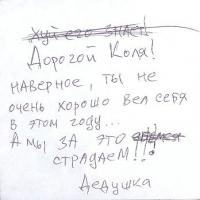 Хуй его знает
Дорогой Коля!
наверное, ты не
очень хорошо вел себя
в этом году...
А мы за это
страдаем!!!
Дедушка